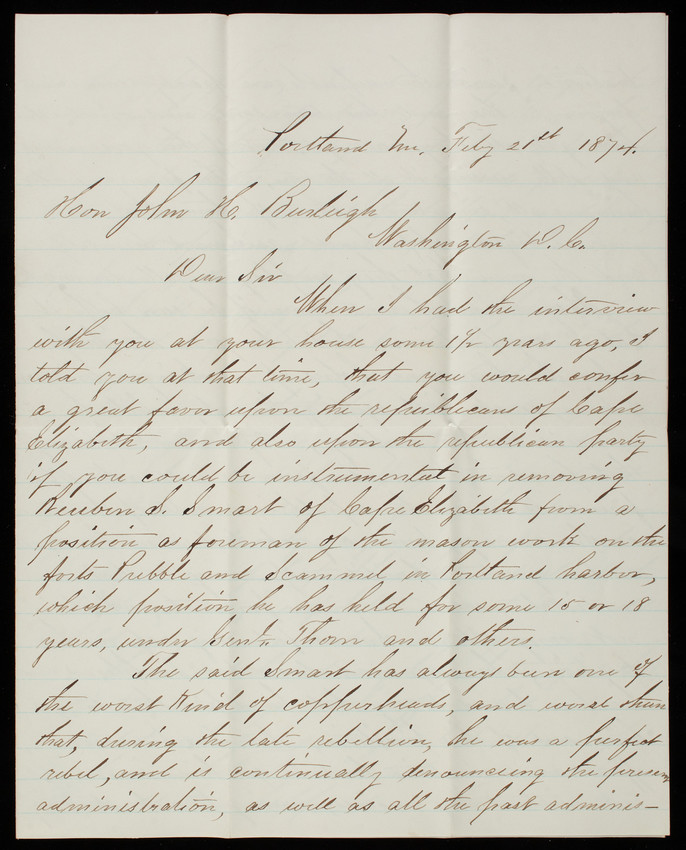 Portland Me. Feby 21st 1874.
Hon John H. Burleigh
Washington D. C.
Dear Sir
When I had the interview
with you at your house some 1 1/2 years ago, I
told you at that time, that you would confer
a great favor upon the republicans of Cape
Elizabeth, and also upon the republican party
if you could be instrumental in removing
Reuben S. Smart of Cape Elizabeth from a
position as foreman of the mason work on the
forts Prebble and Scammel in Portland harbor,
which position he has held for some 15 or 18
years, under Genl. Thom and others.
The said Smart has always been one of
the worst kind of copperheads, and worse than
that, during the late rebellion, he was a perfect
rebel, and is continually denouncing the present
administration, as well as all the past adminis-